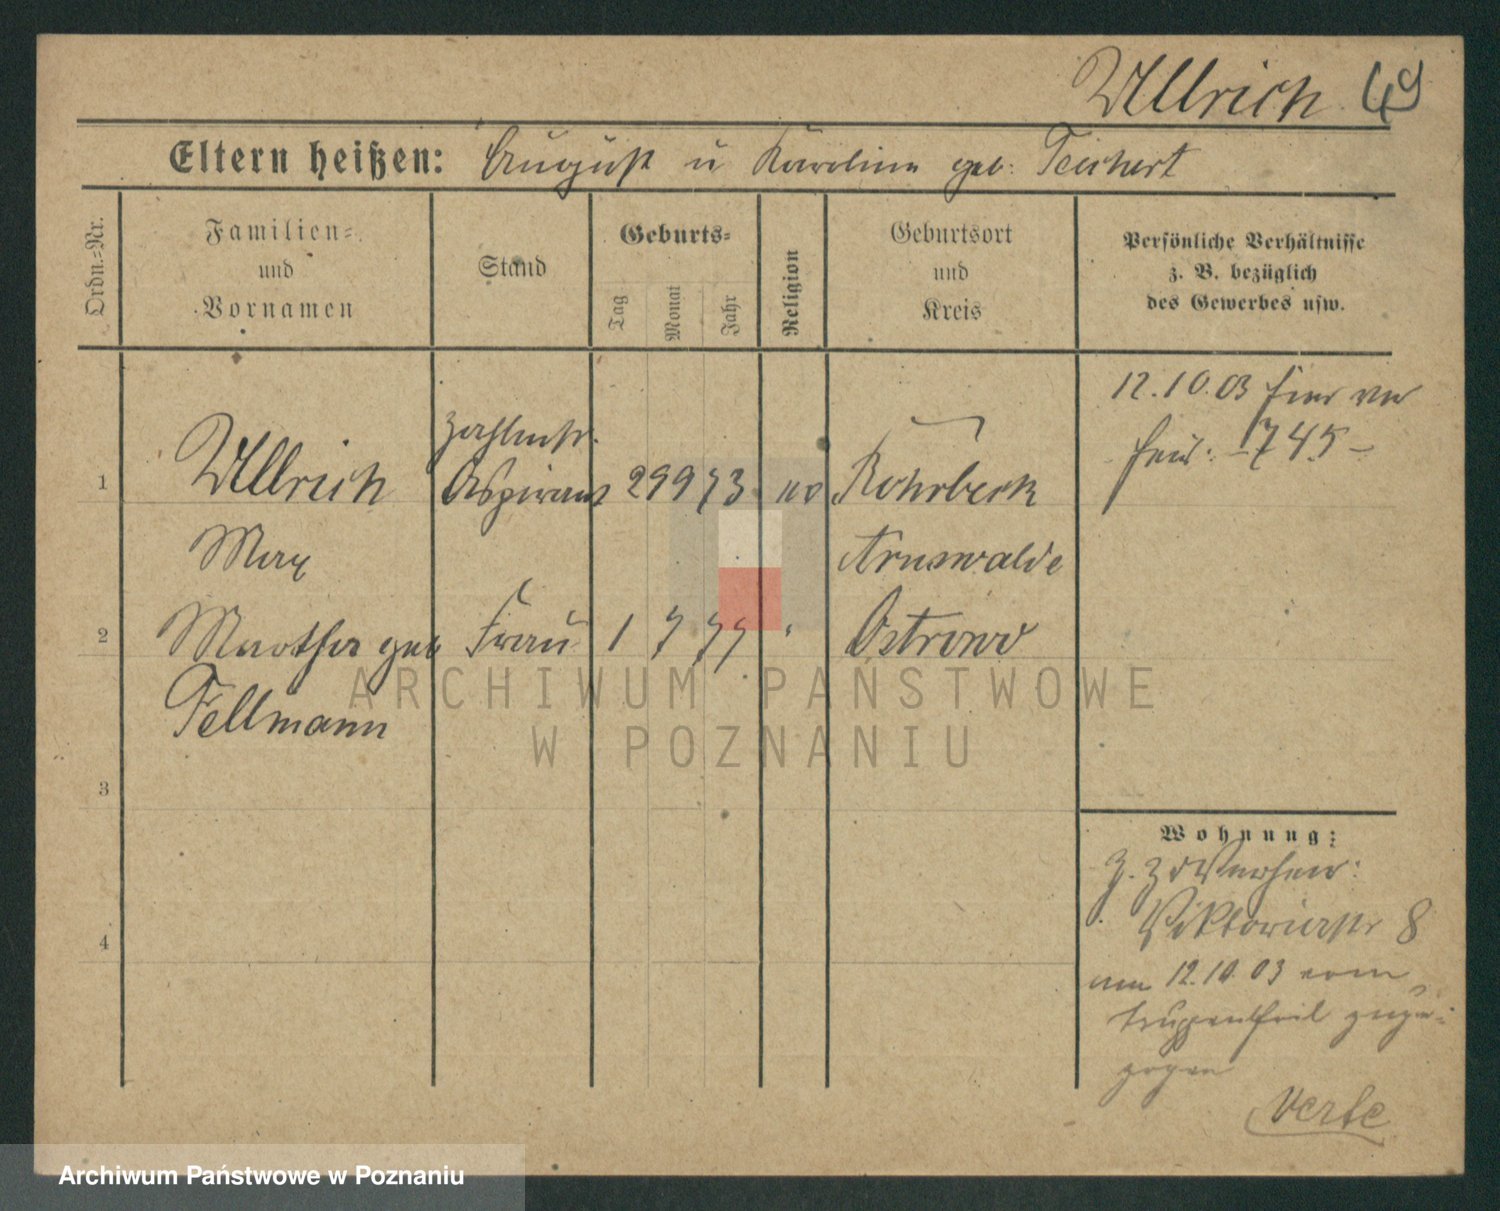 Ullrich 49
Eltern heißen: August u Karoline geb. Teichert
Ordn.-Nr.
Familien-
und
Vornamen
Stand
Geburts-
Tag
Monat
Jahr
Religion
Geburtsort
und
Kreis
Persönliche Verhältnisse
z. B. bezüglich
des Gewerbes usw.
12.10.03
745
1 Ullrich
Zahlmstr.
Aspirant 29 9 73 Rohrbeck
Max Arnswalde
2 Martha geb Frau 1 7 77 Ostrowo
Fellmann
3
4
Wohnung:
Viktoriastr 8
am 12.10.03 vom
Truppentheil zuge-
zogen
Verte
ARCHIWUM PAŃSTWOWE
W POZNANIU
Archiwum Państwowe w Poznaniu